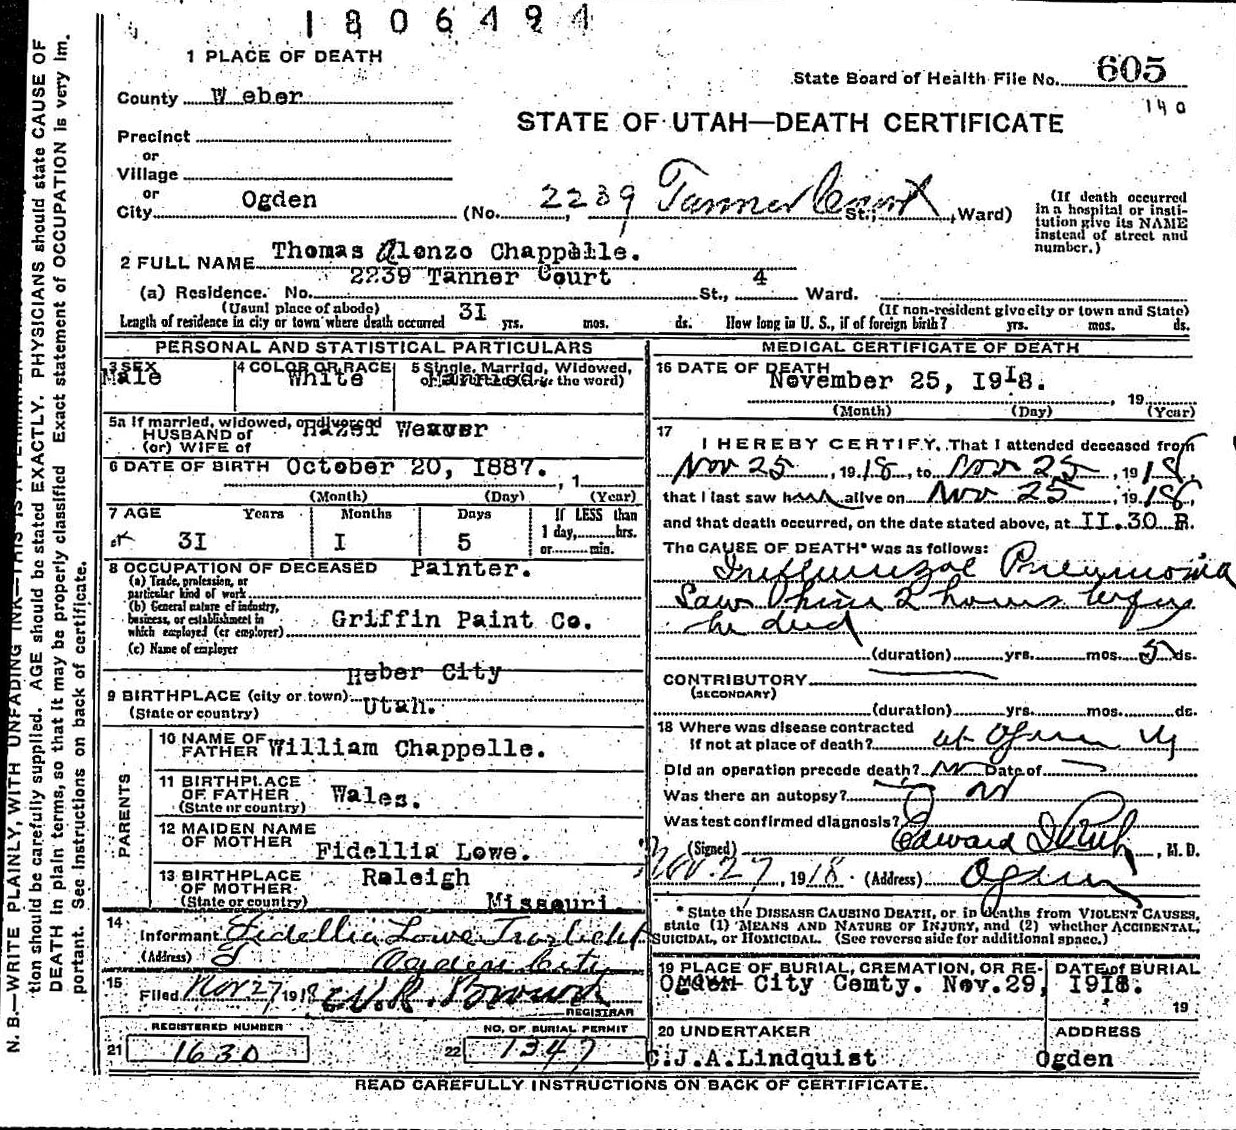 1806494
1 PLACE OF DEATH
State Board of Health File No. 605
140
County Weber
STATE OF UTAH—DEATH CERTIFICATE
Precinct
or
Village
or
City Ogden (No. 2239 Tanner Court St.; Ward)
(If death occurred
in a hospital or insti-
tution give its NAME
instead of street and
number.)
2 FULL NAME Thomas Alonzo Chappelle.
(a) Residence. No. 2239 Tanner Court St., 4 Ward.
(Usual place of abode) (If non-resident give city or town and State)
Length of residence in city or town where death occurred 3I yrs. mos. ds. How long in U. S., if of foreign birth? yrs. mos. ds.
PERSONAL AND STATISTICAL PARTICULARS
3 SEX Male
4 COLOR OR RACE White
5 Single, Married, Widowed,
or Divorced (write the word) Married
5a If married, widowed, or divorced
HUSBAND of Hazel Weaver
(or) WIFE of
6 DATE OF BIRTH October 20, I887. , 1
(Month) (Day) (Year)
7 AGE Years Months Days If LESS than
3I I 5 1 day, hrs.
or min.
8 OCCUPATION OF DECEASED Painter.
(a) Trade, profession, or
particular kind of work
(b) General nature of industry,
business, or establishment in
which employed (or employer) Griffin Paint Co.
(c) Name of employer
Heber City
9 BIRTHPLACE (city or town)
(State or country) Utah.
PARENTS
10 NAME OF
FATHER William Chappelle.
11 BIRTHPLACE
OF FATHER Wales.
(State or country)
12 MAIDEN NAME
OF MOTHER
Fidellia Lowe.
13 BIRTHPLACE Raleigh
OF MOTHER
(State or country) Missouri.
14
Informant Fidellia Lowe
(Address) Ogden City
15
Filed Nov 27 1918
REGISTRAR
REGISTERED NUMBER
21 1630
NO. OF BURIAL PERMIT
22 1347
MEDICAL CERTIFICATE OF DEATH
16 DATE OF DEATH
November 25, I9I8.
, 19
(Month) (Day) (Year)
17
I HEREBY CERTIFY, That I attended deceased from
Nov 25, 1918, to Nov 25, 1918,
that I last saw him alive on Nov 25, 1918,
and that death occurred, on the date stated above, at II.30 P.
The CAUSE OF DEATH* was as follows:
Influenzal Pneumonia
Saw him 2 hours before
he died
(duration) yrs. mos. 5 ds.
CONTRIBUTORY
(SECONDARY)
(duration) yrs. mos. ds.
18 Where was disease contracted
If not at place of death? at Ogden
Did an operation precede death? No Date of
Was there an autopsy? No
Was test confirmed diagnosis?
(Signed) Edward I Rich, M. D.
Nov. 27, 1918 (Address) Ogden
* State the DISEASE CAUSING DEATH, or in deaths from VIOLENT CAUSES,
state (1) MEANS AND NATURE OF INJURY, and (2) whether ACCIDENTAL,
SUICIDAL, or HOMICIDAL. (See reverse side for additional space.)
19 PLACE OF BURIAL, CREMATION, OR RE- DATE of BURIAL
Ogden City Cemty. Nov.29, I918.
19
20 UNDERTAKER ADDRESS
C.J.A.Lindquist Ogden
READ CAREFULLY INSTRUCTIONS ON BACK OF CERTIFICATE.
N. B.—WRITE PLAINLY, WITH UNFADING INK—THIS IS A PERMANENT
tion should be carefully supplied. AGE should be stated EXACTLY. PHYSICIANS should state CAUSE OF
DEATH in plain terms, so that it may be properly classified Exact statement of OCCUPATION is very im.
portant. See instructions on back of certificate.